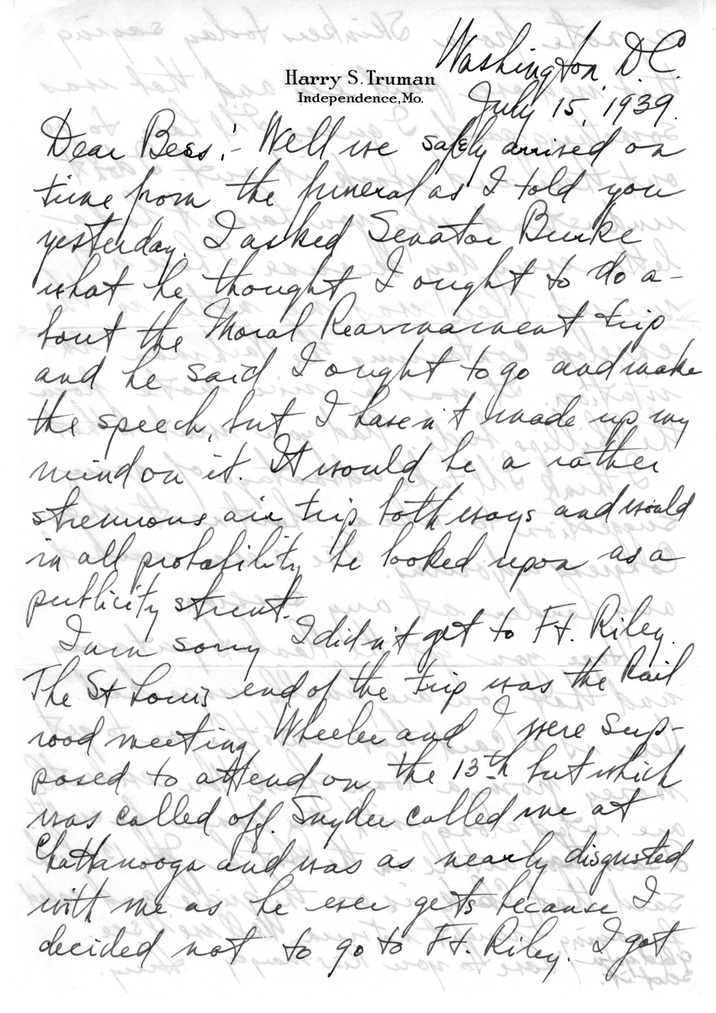 Harry S. Truman
Independence, Mo.
Washington, D.C.
July 15, 1939.
Dear Bess:- Well we safely arrived on
time from the funeral as I told you
yesterday. I asked Senator Burke
what he thought I ought to do a-
bout the Moral Rearmament trip
and he said I ought to go and make
the speech, but I haven't made up my
mind on it. It would be a rather
strenuous air trip both ways and would
in all probability be looked upon as a
publicity stunt.
I am sorry I didn't get to Ft. Riley.
The St Louis end of the trip was the Rail
road meeting Wheeler and I were sup-
posed to attend on the 13th but which
was called off. Snyder called me at
Chattanooga and was as nearly disgusted
with me as he ever gets because I
decided not to go to Ft. Riley. I got